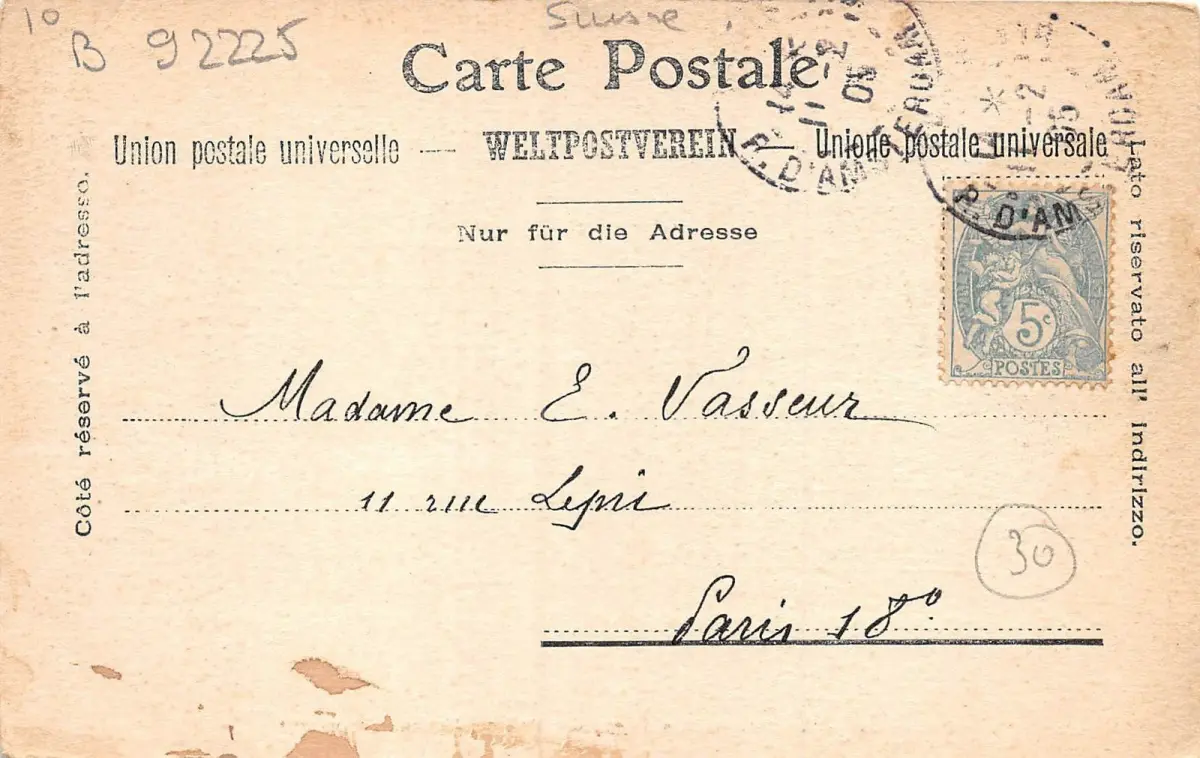 10
B 92225
Suisse
Carte Postale
Union postale universelle — WELTPOSTVEREIN — Unione postale universale
Nur für die Adresse
Côté réservé à l'adresse.
Lato riservato all' Indirizzo.
11 -2 05
R. D'AM
R. D'AM
5c
POSTES
Madame E. Vasseur
11 rue Lepic
Paris 18°
30